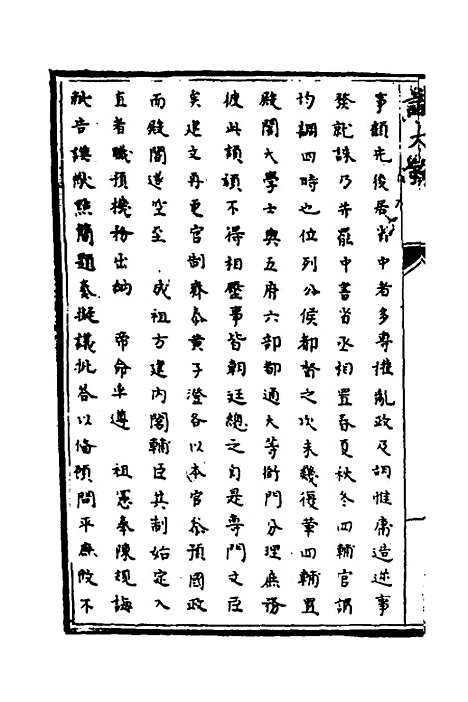 事顧先後居省中者多專擅亂政及胡惟庸造逆事
發就誅乃并罷中書省丞相置春夏秋冬四輔官謂
均調四時也位列公侯都督之次未幾復革四輔置
殿閣大學士與五府六部都通大等衙門分理庶務
彼此頡頏不得相壓事皆朝廷總之自是專門文臣
矣建文再更官制齊泰黃子澄各以本官叅預國政
而殿閣遂空至 成祖方建內閣輔臣其制始定入
直者職預機務出納 帝命率遵 祖憲奉陳規誨
獻告謨猷點簡題奏擬議批答以偹顧問平庶政不